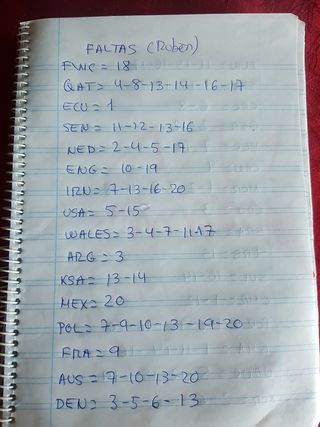 FALTAS (Ruben)
FWC = 18
QAT = 4-8-13-14-16-17
ECU = 1
SEN = 11-12-13-16
NED = 2-4-5-17
ENG = 10-19
IRN = 7-13-16-20
USA = 5-15
WALES = 3-4-7-11-17
ARG = 3
KSA = 13-14
MEX = 20
POL = 7-9-10-13-19-20
FRA = 9
AUS = 7-10-13-20
DEN = 3-5-6-13